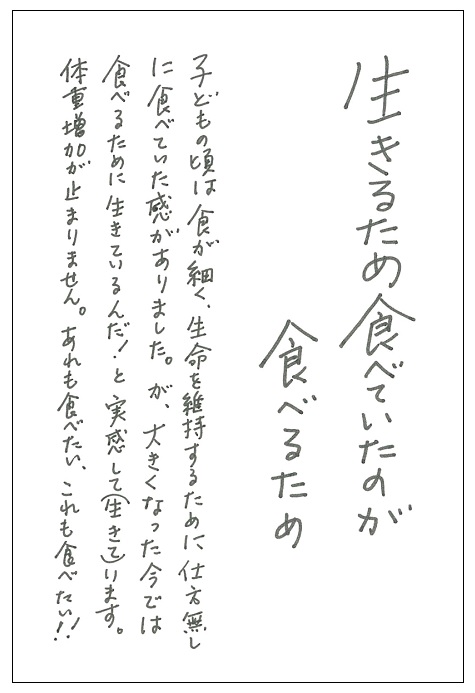 生きるため食べていたのが
食べるため
子どもの頃は食が細く、生命を維持するために仕方無し
に食べていた感がありました。が、大きくなった今では
食べるために生きているんだ!と実感して(生きて)います。
体重増加が止まりません。あれも食べたい、これも食べたい!!